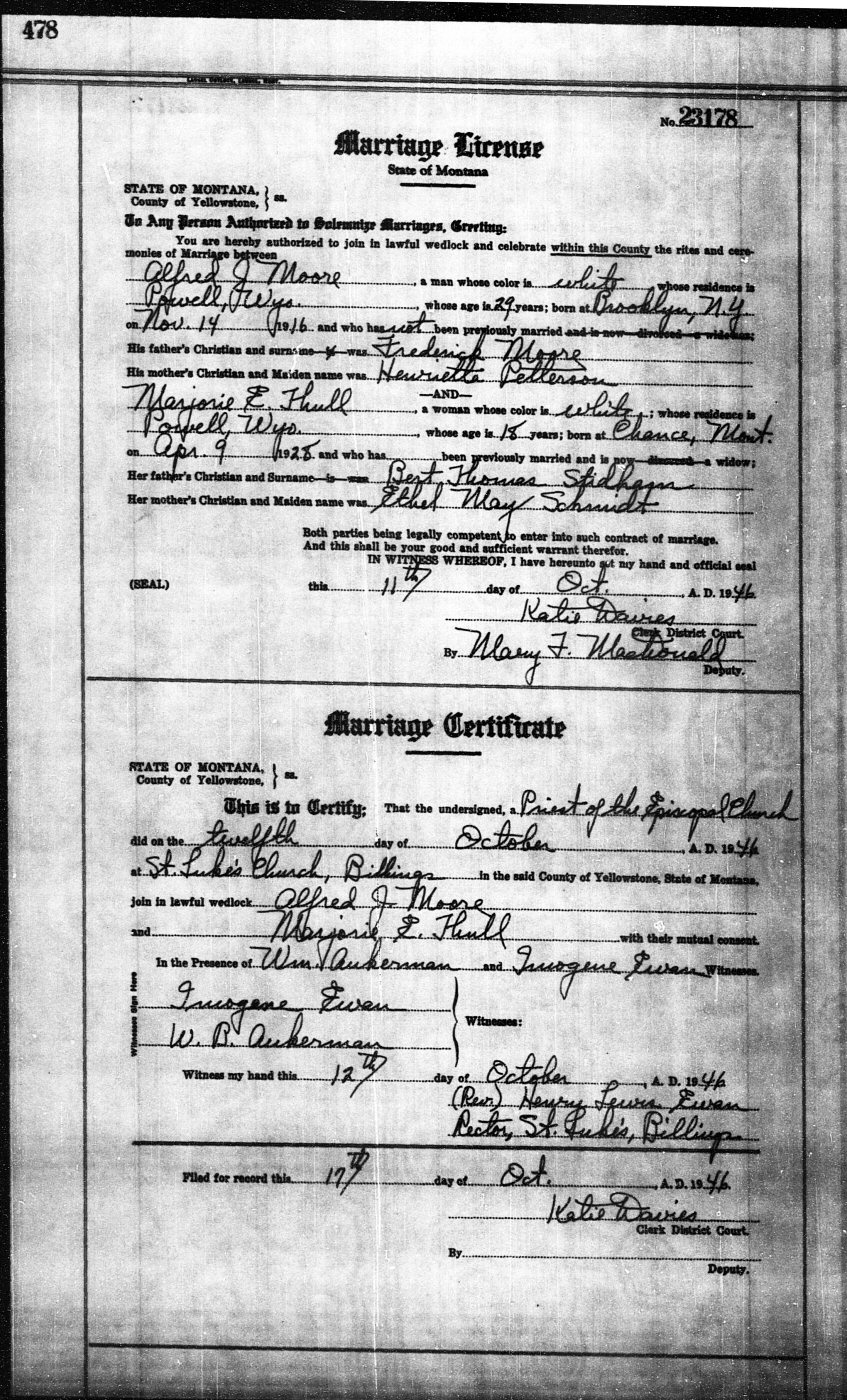 478
No. 23178
Marriage License
State of Montana
STATE OF MONTANA,
County of Yellowstone, } ss.
To Any Person Authorized to Solemnize Marriages, Greeting:
You are hereby authorized to join in lawful wedlock and celebrate within this County the rites and cere-
monies of Marriage between
Alfred J. Moore, a man whose color is white whose residence is
Powell, Wyo., whose age is 29 years; born at Brooklyn, N.Y.
on Nov. 14 1916 and who has not been previously married and is now divorced a widower;
His father's Christian and surname is was Frederick Moore
His mother's Christian and Maiden name was Henrietta Petterson
—AND—
Marjorie E. Thull, a woman whose color is white; whose residence is
Powell, Wyo., whose age is 18 years; born at Chance, Mont.
on Apr. 9 1928 and who has been previously married and is now divorced a widow;
Her father's Christian and Surname is was Bert Thomas Stidham
Her mother's Christian and Maiden name was Ethel May Schmidt
Both parties being legally competent to enter into such contract of marriage.
And this shall be your good and sufficient warrant therefor.
IN WITNESS WHEREOF, I have hereunto set my hand and official seal
(SEAL) this 11th day of Oct., A. D. 1946
Katie Davies
Clerk District Court.
By Mary F. MacDonald
Deputy.
Marriage Certificate
STATE OF MONTANA,
County of Yellowstone, } ss.
This is to Certify; That the undersigned, a Priest of the Episcopal Church
did on the twelfth day of October, A. D. 1946
at St. Luke's Church, Billings in the said County of Yellowstone, State of Montana,
join in lawful wedlock Alfred J. Moore
and Marjorie E. Thull with their mutual consent.
In the Presence of Wm. Aukerman and Imogene Ewan Witnesses.
Witnesses Sign Here
Imogene Ewan
W. B. Aukerman
Witnesses:
Witness my hand this 12th day of October, A. D. 1946
(Rev.) Henry Lewis Ewan
Rector, St. Luke's, Billings
Filed for record this 17th day of Oct., A. D. 1946.
Katie Davies
Clerk District Court.
By
Deputy.